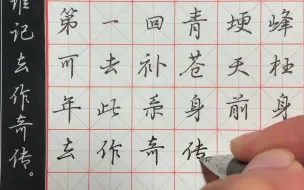 谁记去作奇传。
第一回青埂峰
可去补苍天枉
年此系身前身
去作奇传